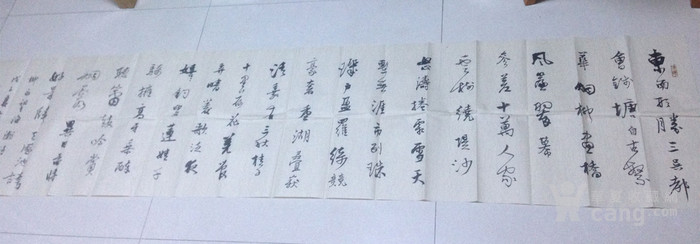 東南形勝三吳都
會錢塘自古繁
華烟柳畫橋
風簾翠幕
參差十萬人家
雲樹繞堤沙
怒濤捲霜雪天
塹無涯市列珠
璣戶盈羅綺競
豪奢重湖疊巘
清嘉有三秋桂子
十里荷花羌管
弄晴菱歌泛夜
嬉嬉釣叟蓮娃千
騎擁高牙乘醉
聽簫鼓吟賞
烟霞異日圖將
好景歸去鳳池誇
cang.com